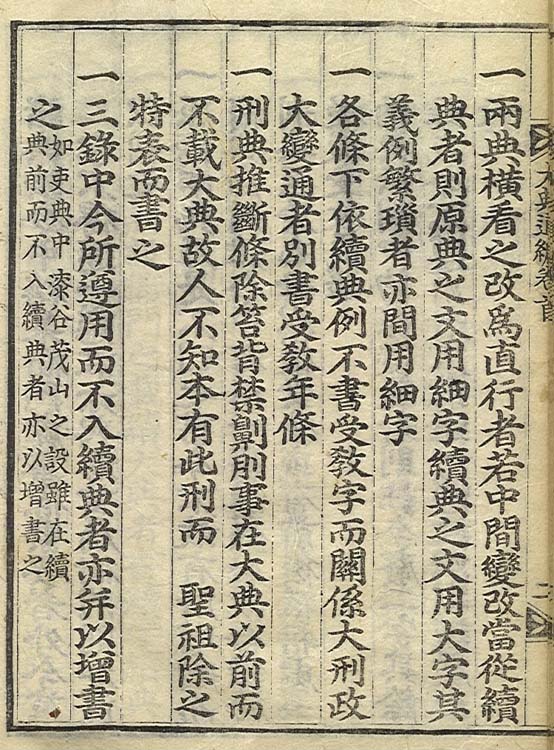 大典通編卷首
二
一兩典橫看之改爲直行者若中間變改當從續
典者則原典之文用細字續典之文用大字其
義例繁瑣者亦間用細字
一各條下依續典例不書受敎字而關係大刑政
大變通者別書受敎年條
一刑典推斷條除笞背禁劓刖事在大典以前而
不載大典故人不知本有此刑而 聖祖除之
特表而書之
一三錄中今所遵用而不入續典者亦幷以增書
之如吏典中漆谷茂山之設雖在續
典前而不入續典者亦以增書之